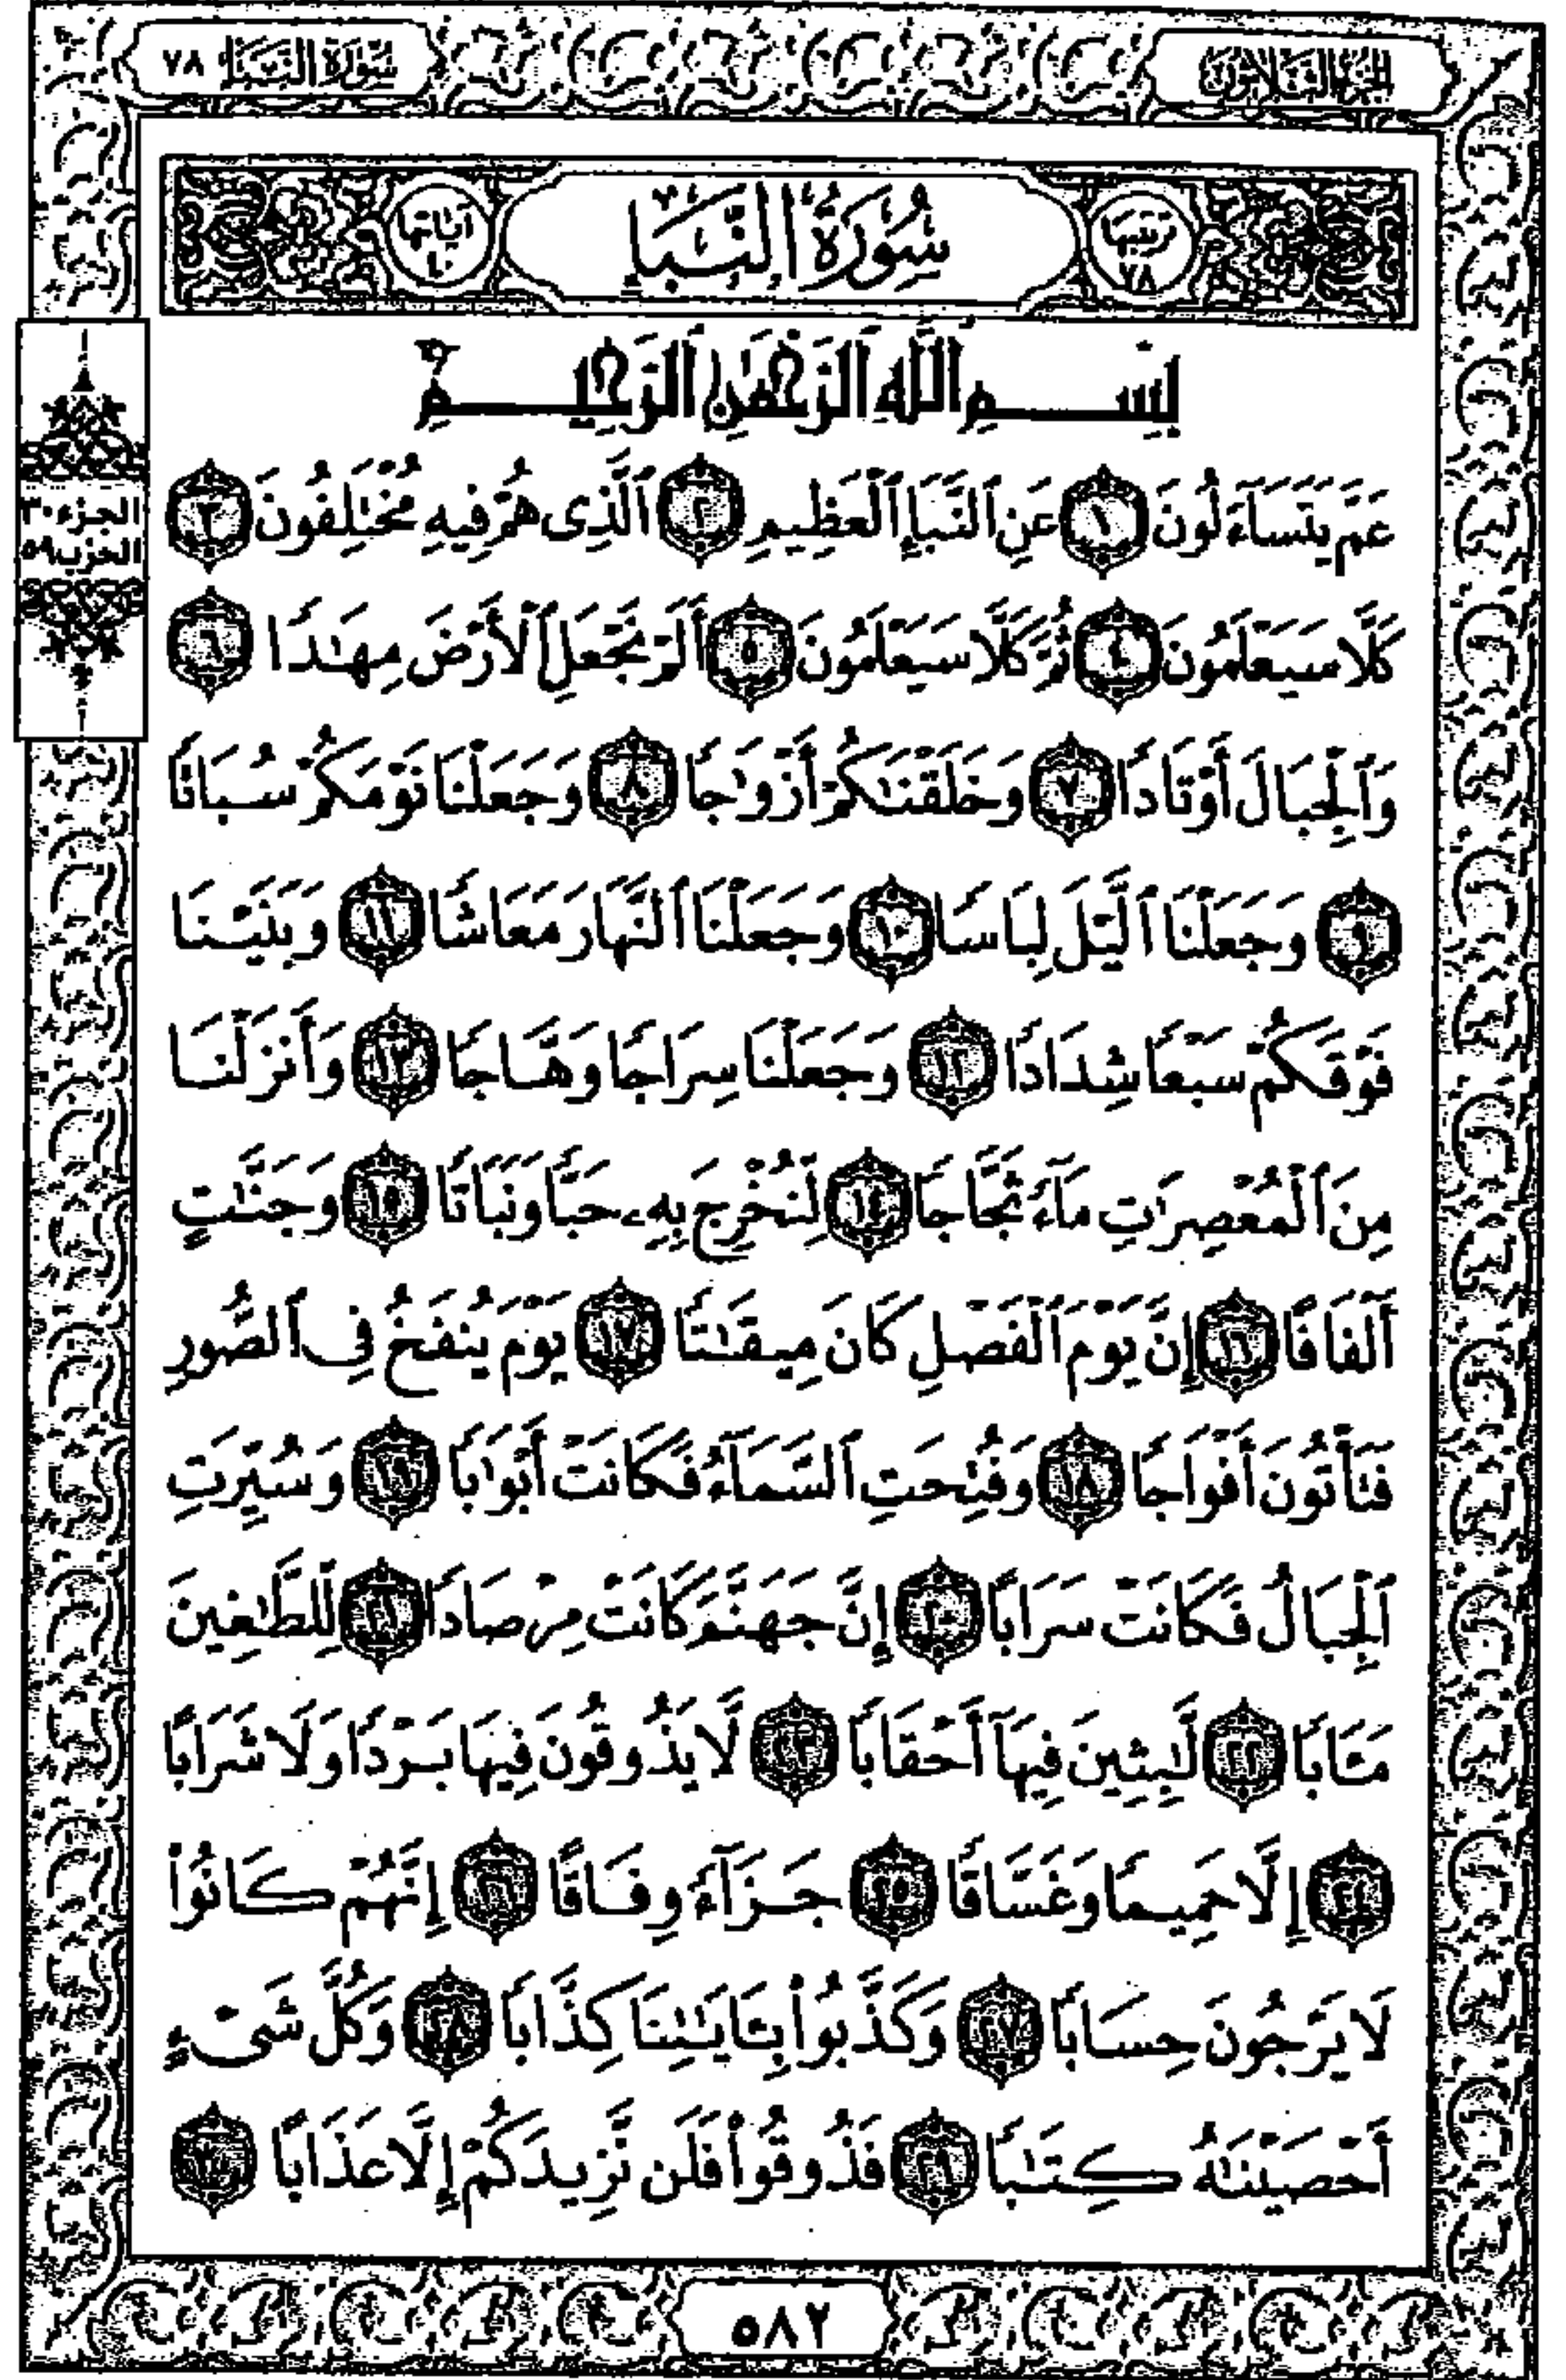 الجزء الثلاثون
سورة النبإ ٧٨
ترتيبها ٧٨
سُورَةُ النَّبَإِ
آياتها ٤٠
بِسْمِ ٱللَّهِ ٱلرَّحْمَٰنِ ٱلرَّحِيمِ
عَمَّ يَتَسَآءَلُونَ ١ عَنِ ٱلنَّبَإِ ٱلْعَظِيمِ ٢ ٱلَّذِى هُمْ فِيهِ مُخْتَلِفُونَ ٣
كَلَّا سَيَعْلَمُونَ ٤ ثُمَّ كَلَّا سَيَعْلَمُونَ ٥ أَلَمْ نَجْعَلِ ٱلْأَرْضَ مِهَٰدًا ٦
وَٱلْجِبَالَ أَوْتَادًا ٧ وَخَلَقْنَٰكُمْ أَزْوَٰجًا ٨ وَجَعَلْنَا نَوْمَكُمْ سُبَاتًا
٩ وَجَعَلْنَا ٱلَّيْلَ لِبَاسًا ١٠ وَجَعَلْنَا ٱلنَّهَارَ مَعَاشًا ١١ وَبَنَيْنَا
فَوْقَكُمْ سَبْعًا شِدَادًا ١٢ وَجَعَلْنَا سِرَاجًا وَهَّاجًا ١٣ وَأَنزَلْنَا
مِنَ ٱلْمُعْصِرَٰتِ مَآءً ثَجَّاجًا ١٤ لِّنُخْرِجَ بِهِۦ حَبًّا وَنَبَاتًا ١٥ وَجَنَّٰتٍ
أَلْفَافًا ١٦ إِنَّ يَوْمَ ٱلْفَصْلِ كَانَ مِيقَٰتًا ١٧ يَوْمَ يُنفَخُ فِى ٱلصُّورِ
فَتَأْتُونَ أَفْوَاجًا ١٨ وَفُتِحَتِ ٱلسَّمَآءُ فَكَانَتْ أَبْوَٰبًا ١٩ وَسُيِّرَتِ
ٱلْجِبَالُ فَكَانَتْ سَرَابًا ٢٠ إِنَّ جَهَنَّمَ كَانَتْ مِرْصَادًا ٢١ لِّلطَّٰغِينَ
مَـَٔابًا ٢٢ لَّٰبِثِينَ فِيهَآ أَحْقَابًا ٢٣ لَّا يَذُوقُونَ فِيهَا بَرْدًا وَلَا شَرَابًا
٢٤ إِلَّا حَمِيمًا وَغَسَّاقًا ٢٥ جَزَآءً وِفَاقًا ٢٦ إِنَّهُمْ كَانُوا۟
لَا يَرْجُونَ حِسَابًا ٢٧ وَكَذَّبُوا۟ بِـَٔايَٰتِنَا كِذَّابًا ٢٨ وَكُلَّ شَىْءٍ
أَحْصَيْنَٰهُ كِتَٰبًا ٢٩ فَذُوقُوا۟ فَلَن نَّزِيدَكُمْ إِلَّا عَذَابًا ٣٠
الجزء ٣٠
الحزب ٥٩
٥٨٢